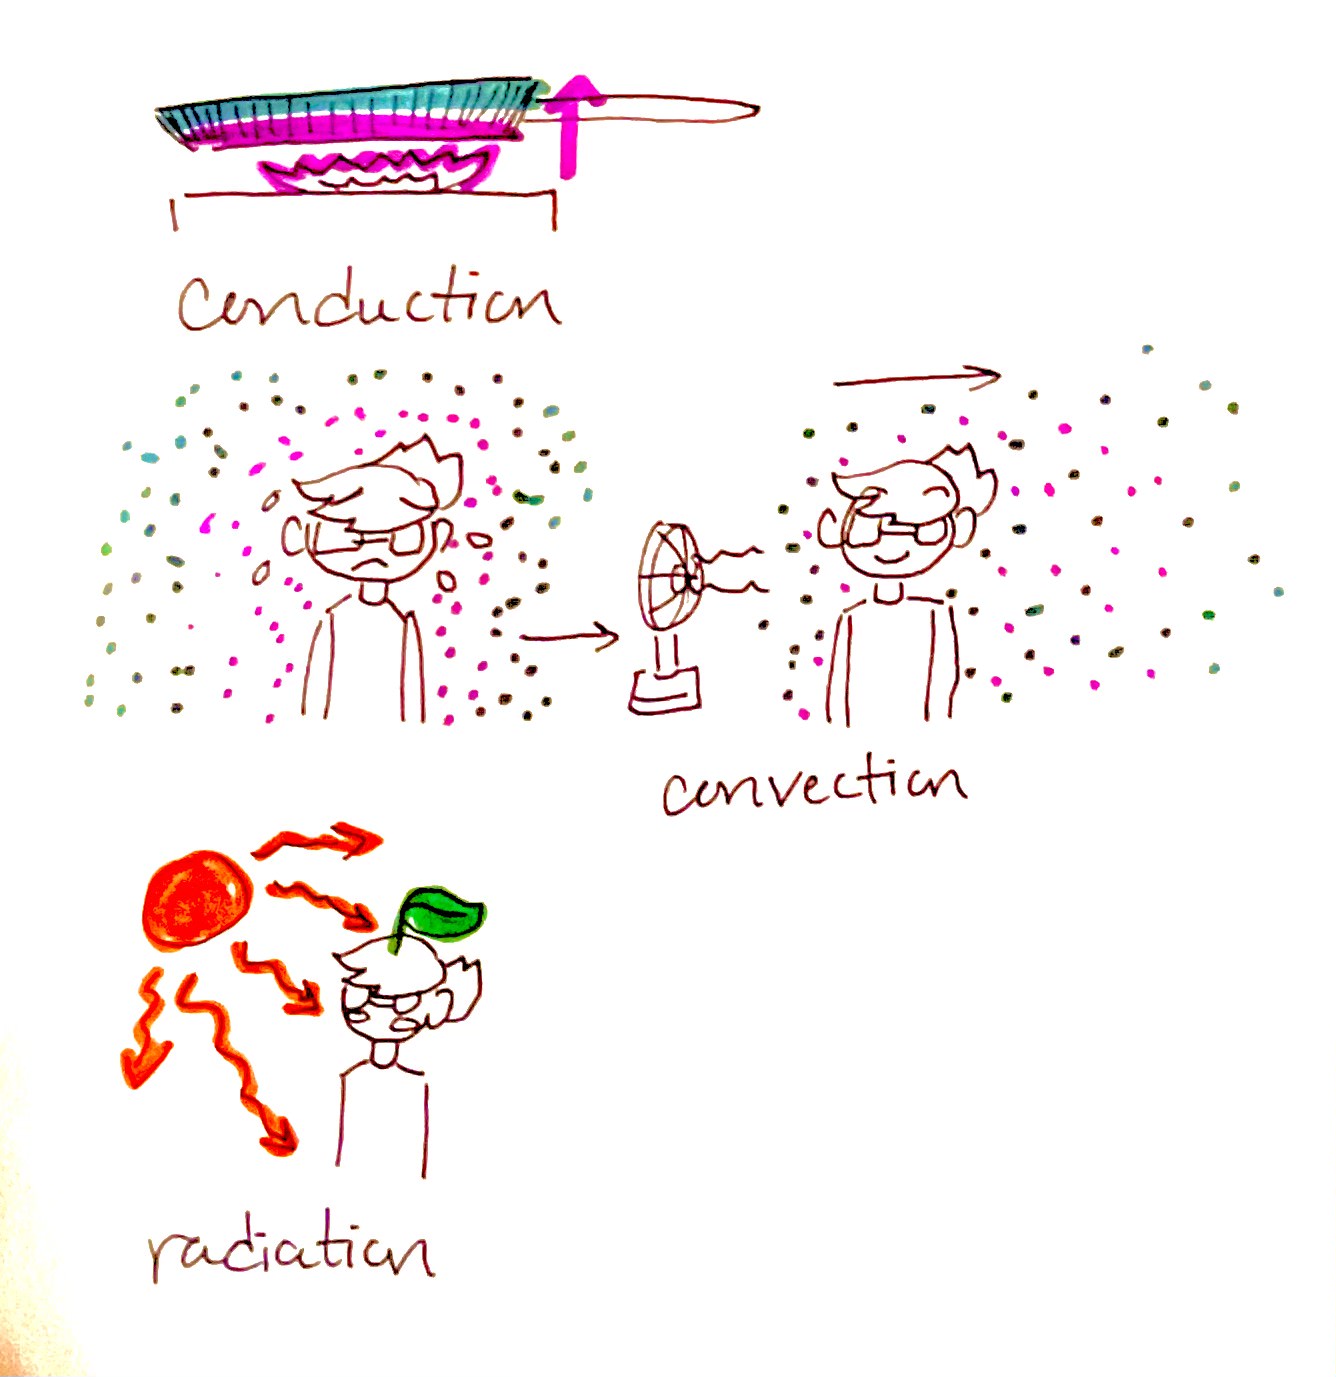 conduction
convection
radiation